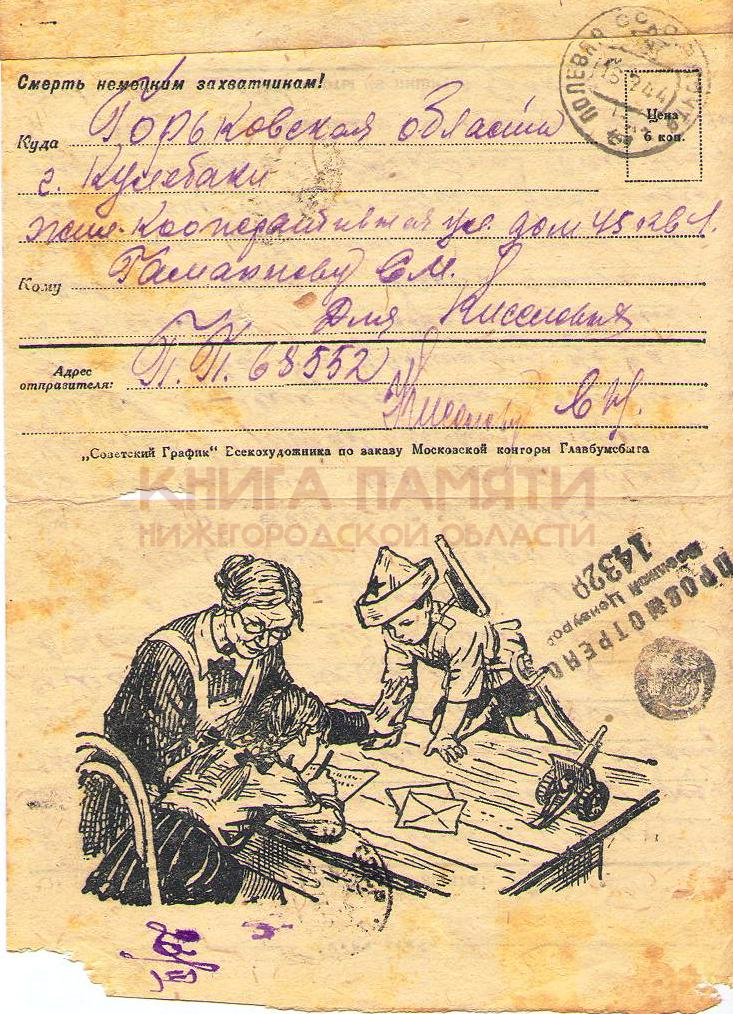 Смерть немецким захватчикам!
Цена
6 коп.
Куда Горьковская область
г. Кулебаки
Кооперативная ул. дом 45 кв 1.
Кому С М.
Для Киселовых
Адрес
отправителя: П. П. 68552
„Советский График" Всекохудожника по заказу Московской конторы Главбумсбыта
КНИГА ПАМЯТИ
НИЖЕГОРОДСКОЙ ОБЛАСТИ
ПРОСМОТРЕНО
Военной Цензурой
14320